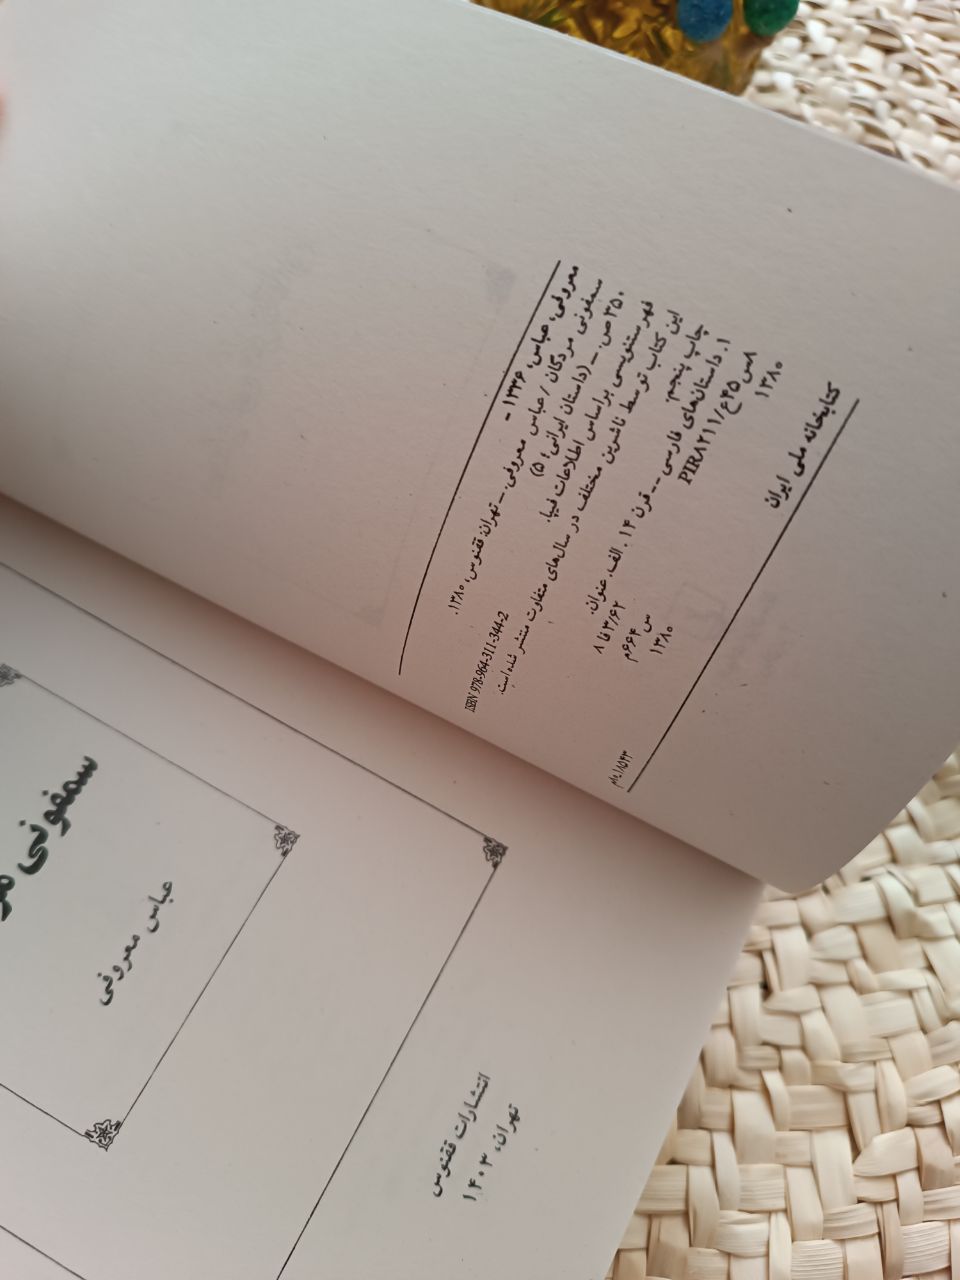 معروفی، عباس، ۱۳۳۶ -
سمفونی مردگان / عباس معروفی. – تهران: ققنوس، ۱۳۸۰.
۳۵۰ ص. – (داستان ایرانی؛ ۵)
ISBN 978-964-311-344-2
فهرستنویسی براساس اطلاعات فیپا.
این کتاب توسط ناشرین مختلف در سال‌های متفاوت منتشر شده است.
چاپ پنجم.
۱. داستان‌های فارسی -- قرن ۱۴. الف. عنوان.
۸س۴۵ع/PIR۸۲۱۱ ۸فا۳/۶۲
۱۳۸۰ س
م۶۶۴
۱۳۸۰
کتابخانه ملی ایران
سمفونی
عباس معروفی
انتشارات ققنوس
تهران، ۱۴۰۳